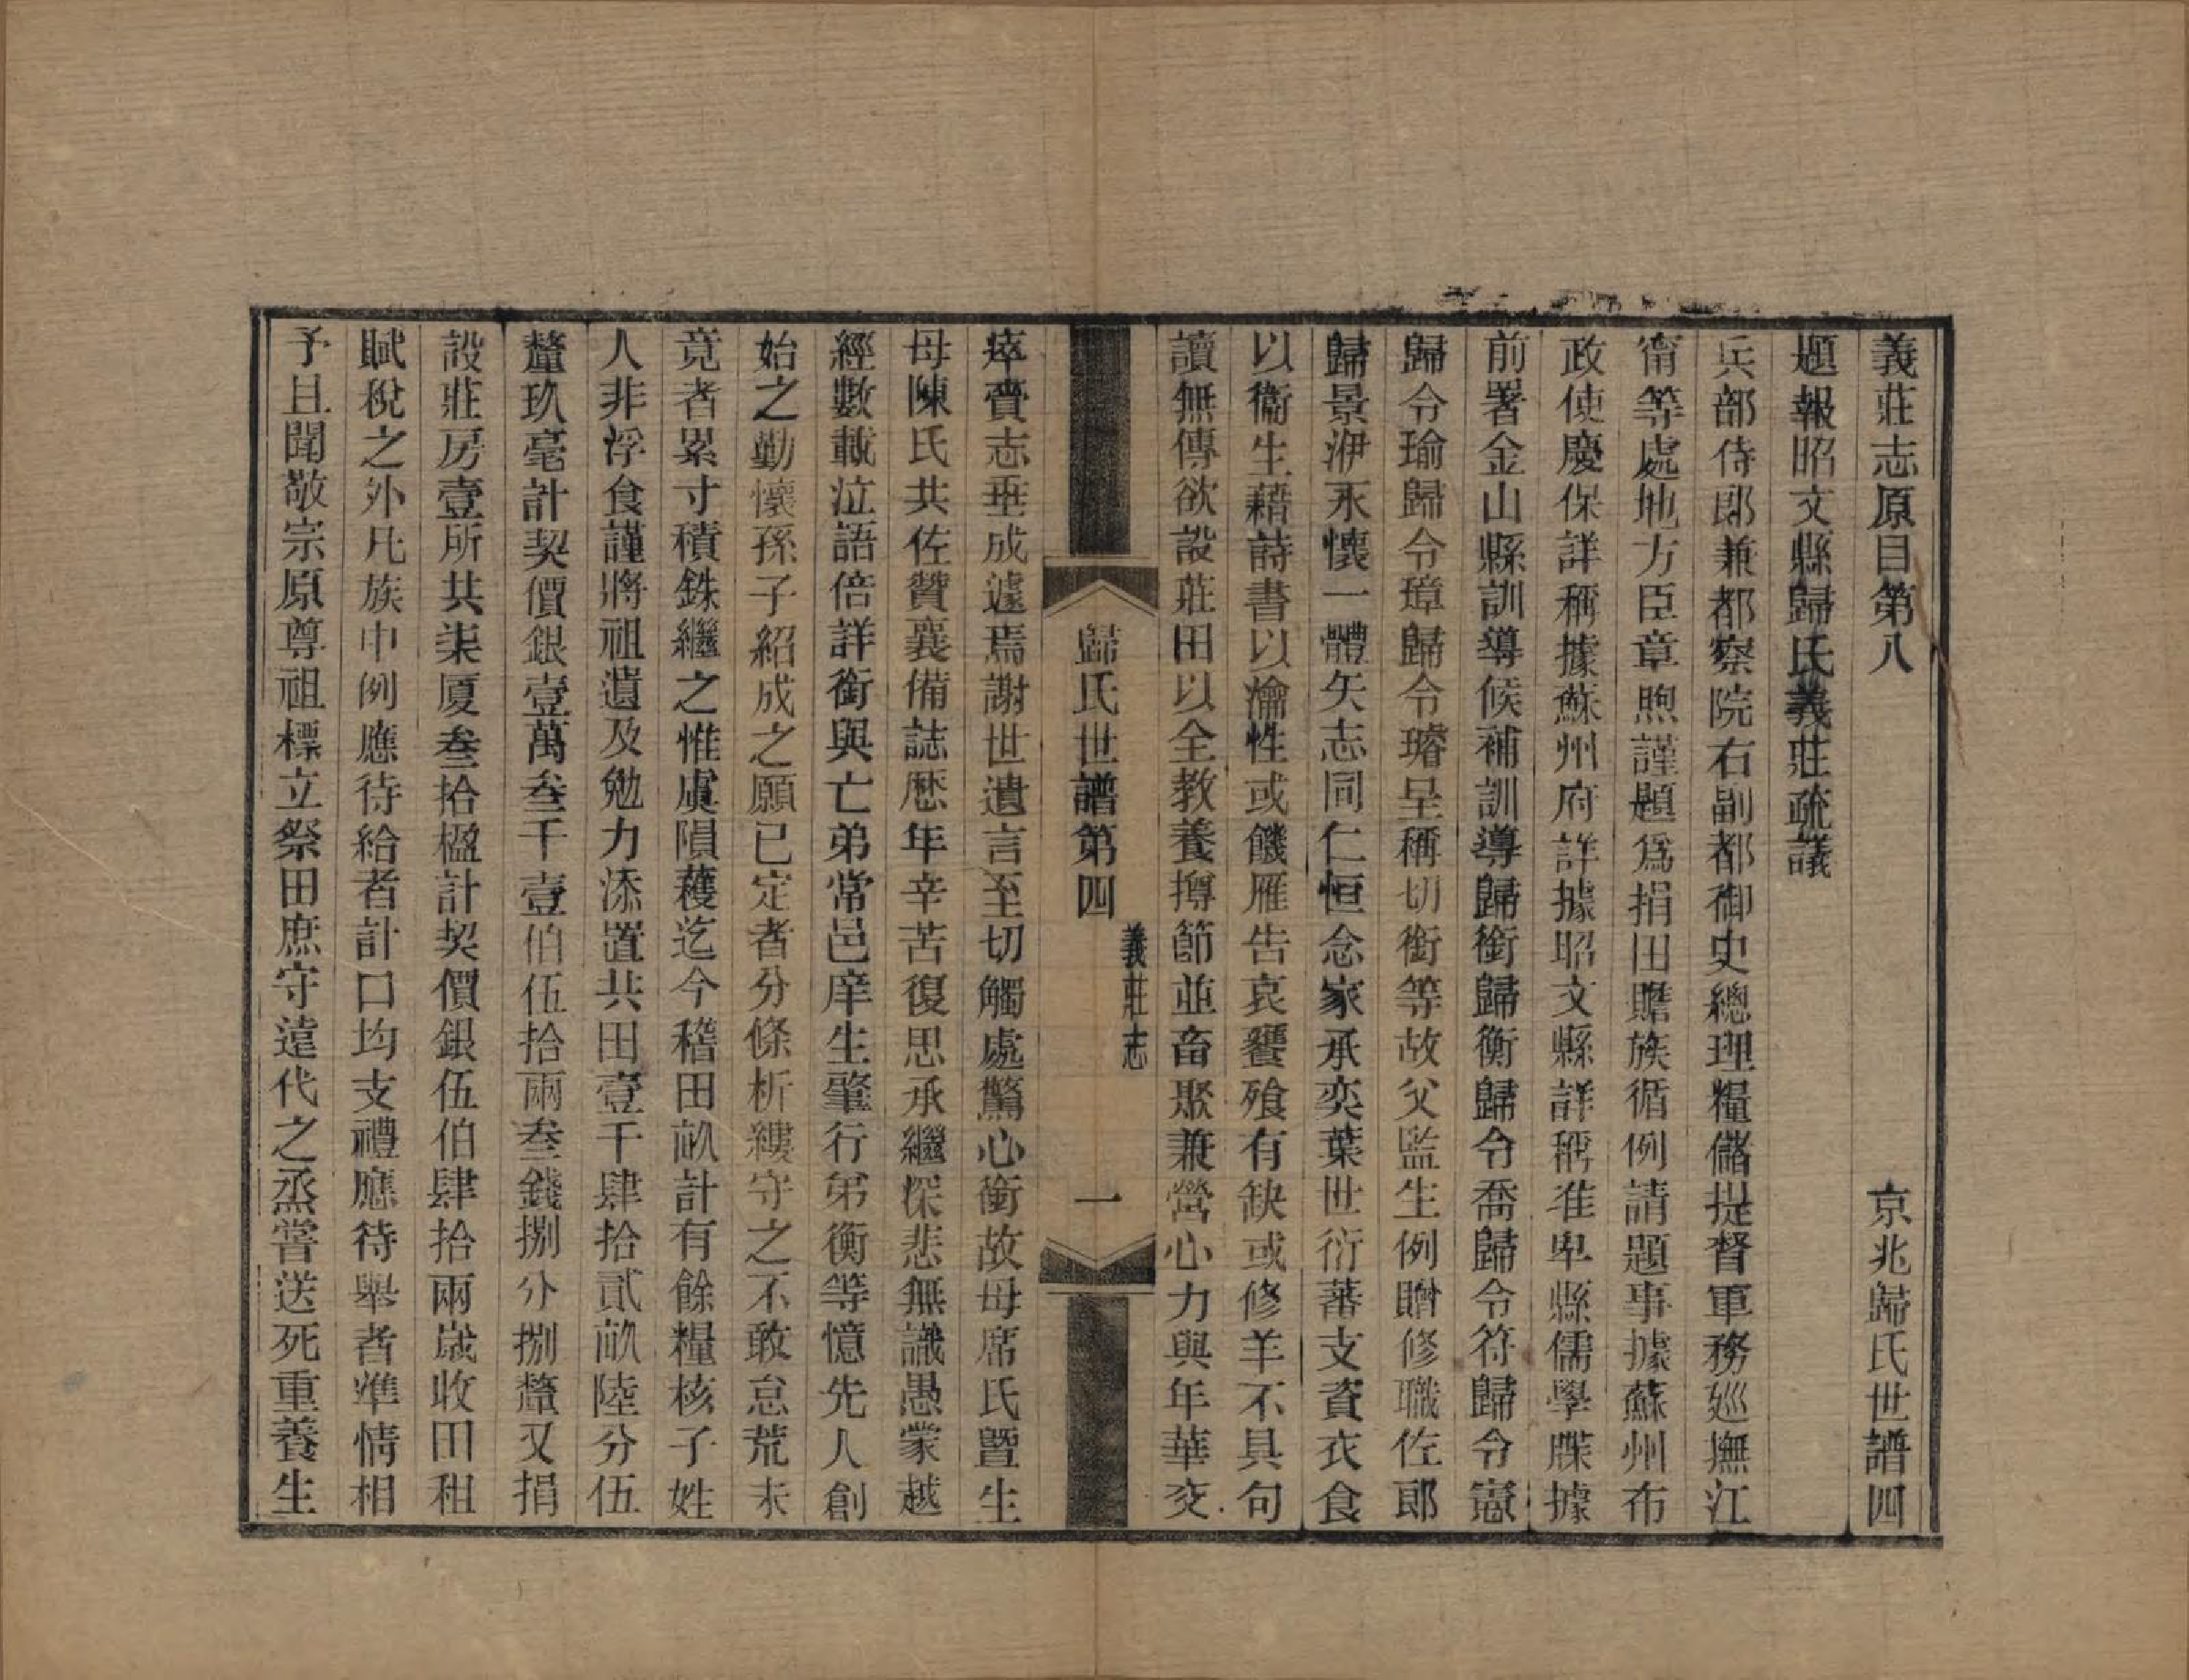 義莊志原目第八　京兆歸氏世譜四
題報昭文縣歸氏義莊疏議
兵部侍郎兼都察院右副都御史總理糧儲提督軍務廵撫江
甯等處地方臣章煦謹題爲捐田贍族循例請題事據蘇州布
政使慶保詳稱據蘇州府詳據昭文縣詳稱准卑縣儒學牒據
前署金山縣訓導候補訓導歸銜歸衡歸令喬歸令符歸令窻
歸令瑜歸令璋歸令璿呈稱切銜等故父監生例贈修職佐郎
歸景洢永懷一體矢志同仁恒念家承奕葉世衍蕃支資衣食
以衞生藉詩書以瀹性或饑雁告哀饔飱有缺或修羊不具句
讀無傳欲設莊田以全教養撙節並畜聚兼營心力與年華交
歸氏世譜第四　義莊志　一
瘁賫志垂成遽焉謝世遺言至切觸處驚心銜故母席氏暨生
母陳氏共佐贊襄備誌歷年辛苦復思承繼深悲無識愚蒙越
經數載泣語倍詳銜與亡弟常邑庠生肇行弟衡等憶先人創
始之勤懷孫子紹成之願已定者分條析縷守之不敢怠荒未
竟者累寸積銖繼之惟虞隕穫迄今稽田畝計有餘糧核子姓
人非浮食謹將祖遺及勉力添置共田壹千肆拾貳畝陸分伍
釐玖毫計契價銀壹萬叁千壹伯伍拾兩叁錢捌分捌釐又捐
設莊房壹所共柒厦叁拾楹計契價銀伍伯肆拾兩歲收田租
賦稅之外凡族中例應待給者計口均支禮應待舉者準情相
予且聞敬宗原尊祖標立祭田庶守遠代之烝嘗送死重養生